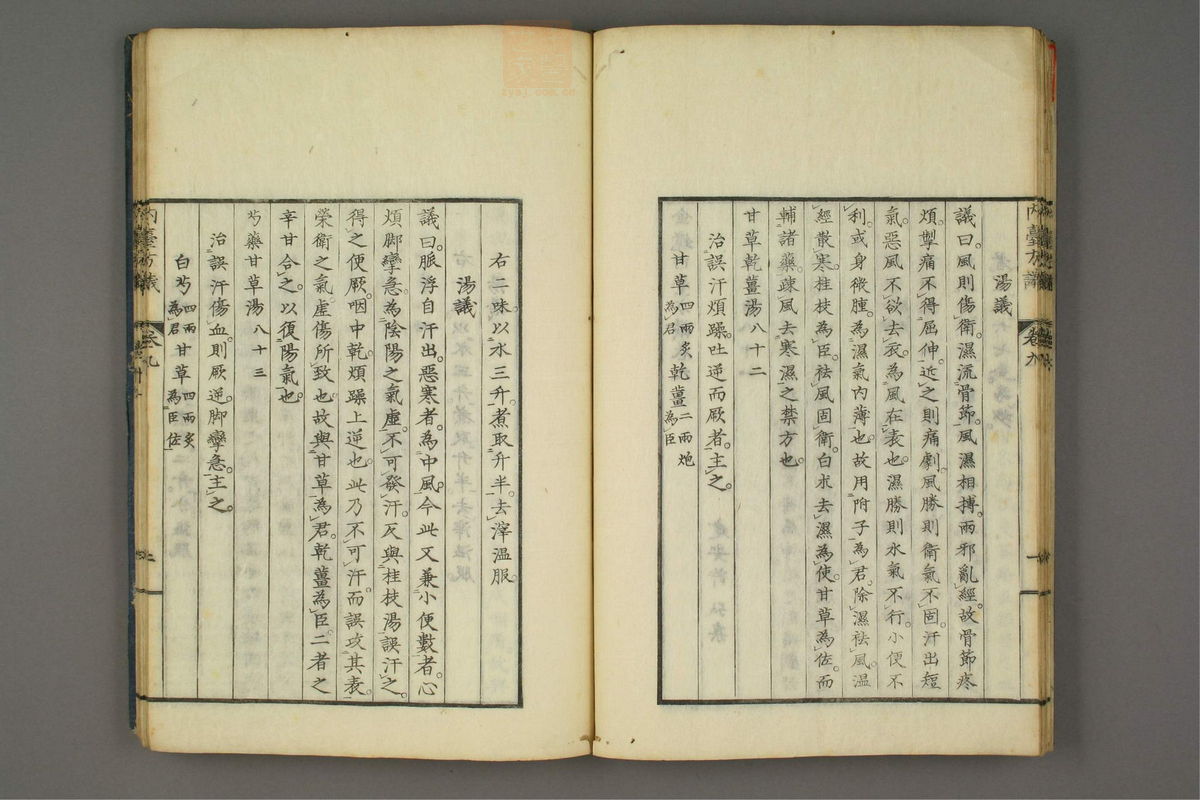 湯議
議曰。風則傷衛。濕流骨節。風濕相搏。兩邪亂經。故骨節疼
煩。掣痛不得屈伸。近之則痛劇。風勝則衛氣不固。汗出短
氣。惡風不欲去衣。為風在表也。濕勝則水氣不行。小便不
利。或身微腫。為濕氣內薄也。故用附子為君。除濕祛風。溫
經散寒。桂枝為臣。祛風固衛。白朮去濕為使。甘草為佐。而
輔諸藥。疎風去寒濕之禁方也。
甘草乾薑湯八十二
治誤汗煩躁。吐逆而厥者。主之。
甘草四兩炙為君 乾薑二兩炮為臣
右二味。以水三升。煮取升半。去滓溫服。
湯議
議曰。脈浮自汗出。惡寒者。為中風。今此又兼小便數者。心
煩脚攣急。為陰陽之氣虛。不可發汗。反與桂枝湯誤汗之。
得之便厥。咽中乾。煩躁上逆也。此乃不可汗。而誤攻其表。
榮衛之氣虛傷所致也。故與甘草為君。乾薑為臣。二者之
辛甘合之。以復陽氣也。
芍藥甘草湯八十三
治誤汗傷血。則厥逆。脚攣急。主之。
白芍四兩為君 甘草四兩炙為臣佐
內臺方議 卷九